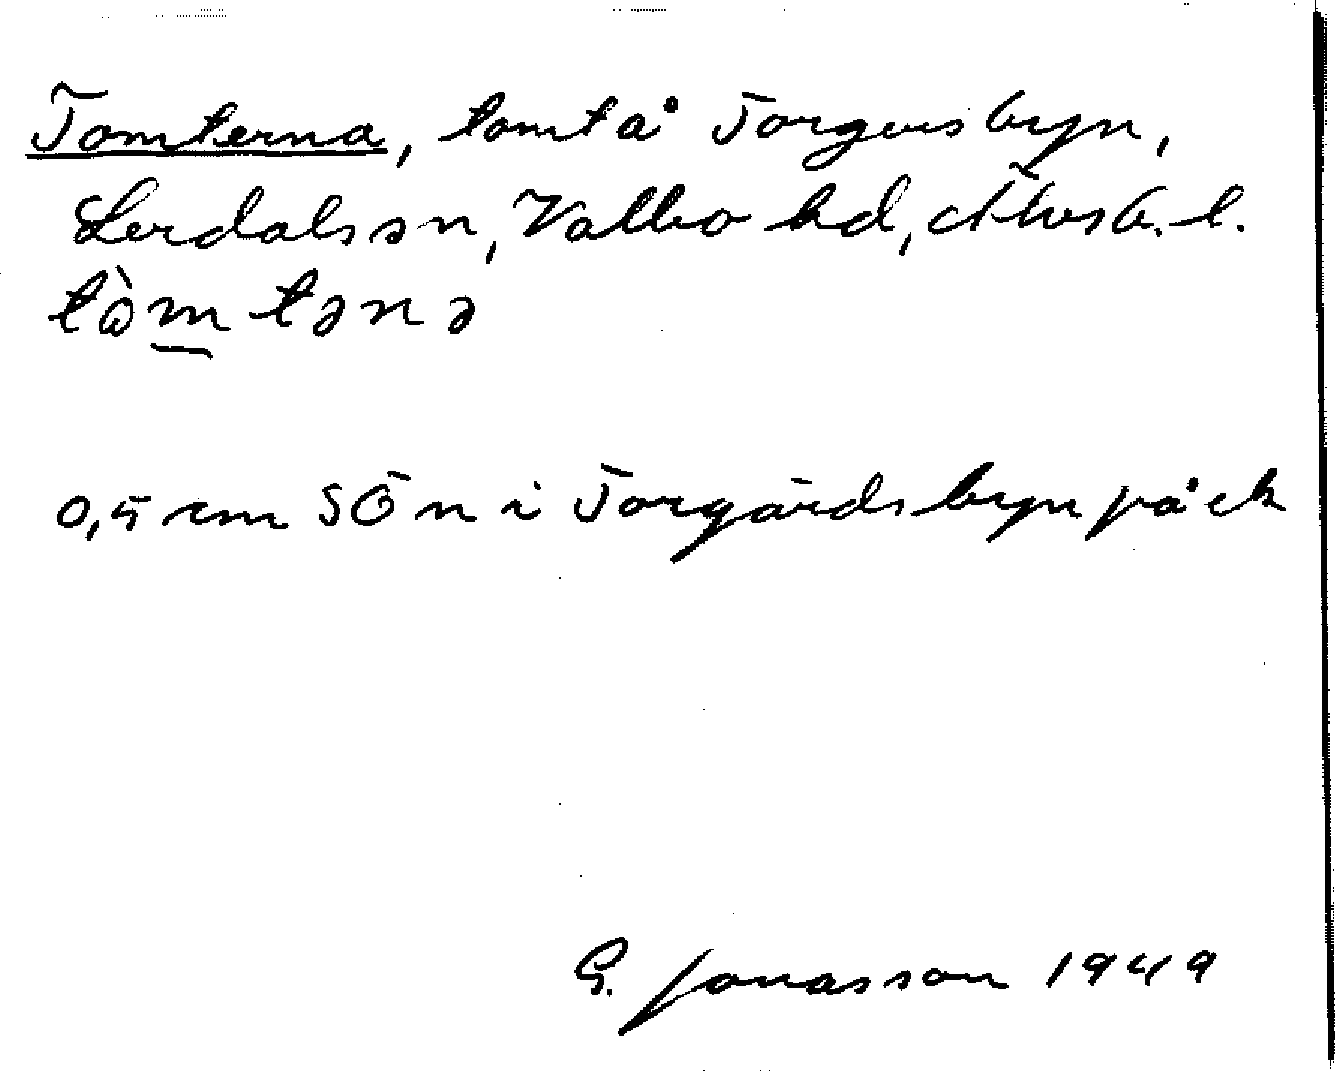 Tomterna, tomt å Torgersbyn,
Lerdals sn, Valbo hd, Älvsb. l.
tò̀mtənə
0,5 cm SÖ n i Torgärdsbyn på ek
G. Jonasson 1949